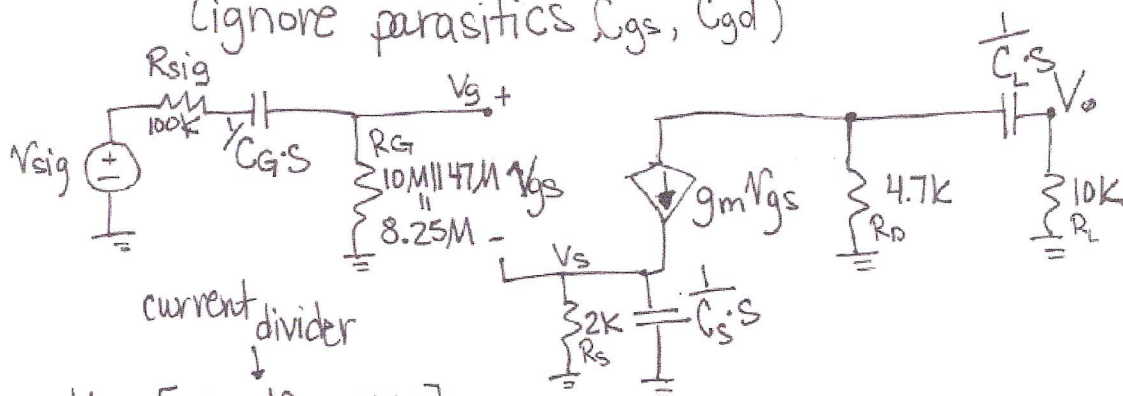 (ignore parasitics, Cgs, Cgd)
Rsig
100K
1/CG·S
Vsig
+
-
Vg +
RG
10M||47M
||
8.25M
Vgs
-
gmVgs
Vs
2K
Rs
1/Cs·S
4.7K
RD
1/CL·S
Vo
10K
RL
current divider